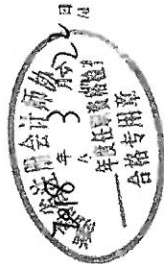 注册会计师协
2018年3月 日
年度任职资格检查
合格专用章